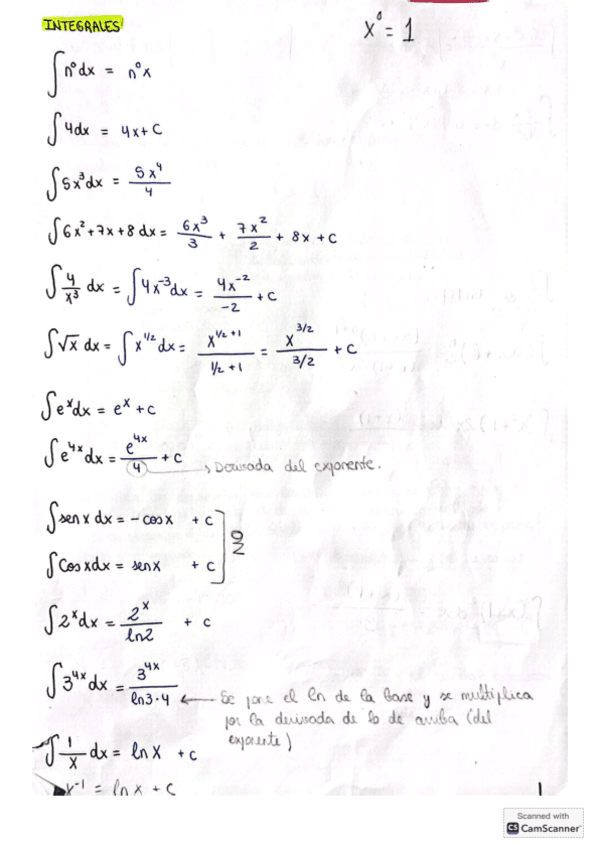 INTEGRALES
x⁰ = 1
∫n⁰dx = n⁰x
∫4dx = 4x + C
∫5x³dx = 5x⁴/4
∫6x² + 7x + 8 dx = 6x³/3 + 7x²/2 + 8x + C
∫4/x³ dx = ∫4x⁻³dx = 4x⁻²/-2 + C
∫√x dx = ∫x^1/2 dx = x^1/2+1 / 1/2+1 = x^3/2 / 3/2 + C
∫eˣdx = eˣ + C
∫e⁴ˣdx = e⁴ˣ/4 + C → Derivada del exponente.
∫sen x dx = - cos x + C
NO
∫Cos x dx = sen x + C
∫2ˣdx = 2ˣ/ln2 + C
∫3⁴ˣdx = 3⁴ˣ/ln3·4 ← Se pone el ln de la base y se multiplica
por la derivada de lo de arriba (del
exponente)
∫1/x dx = ln x + C
x⁻¹ = ln x + C
1
Scanned with
CS CamScanner